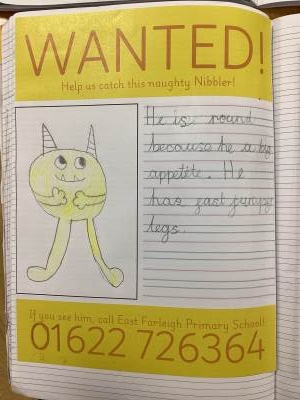 WANTED!
Help us catch this naughty Nibbler!
He is round
because he a big
appetite. He
has fast jumpy
legs.
If you see him, call East Farleigh Primary School!
01622 726364